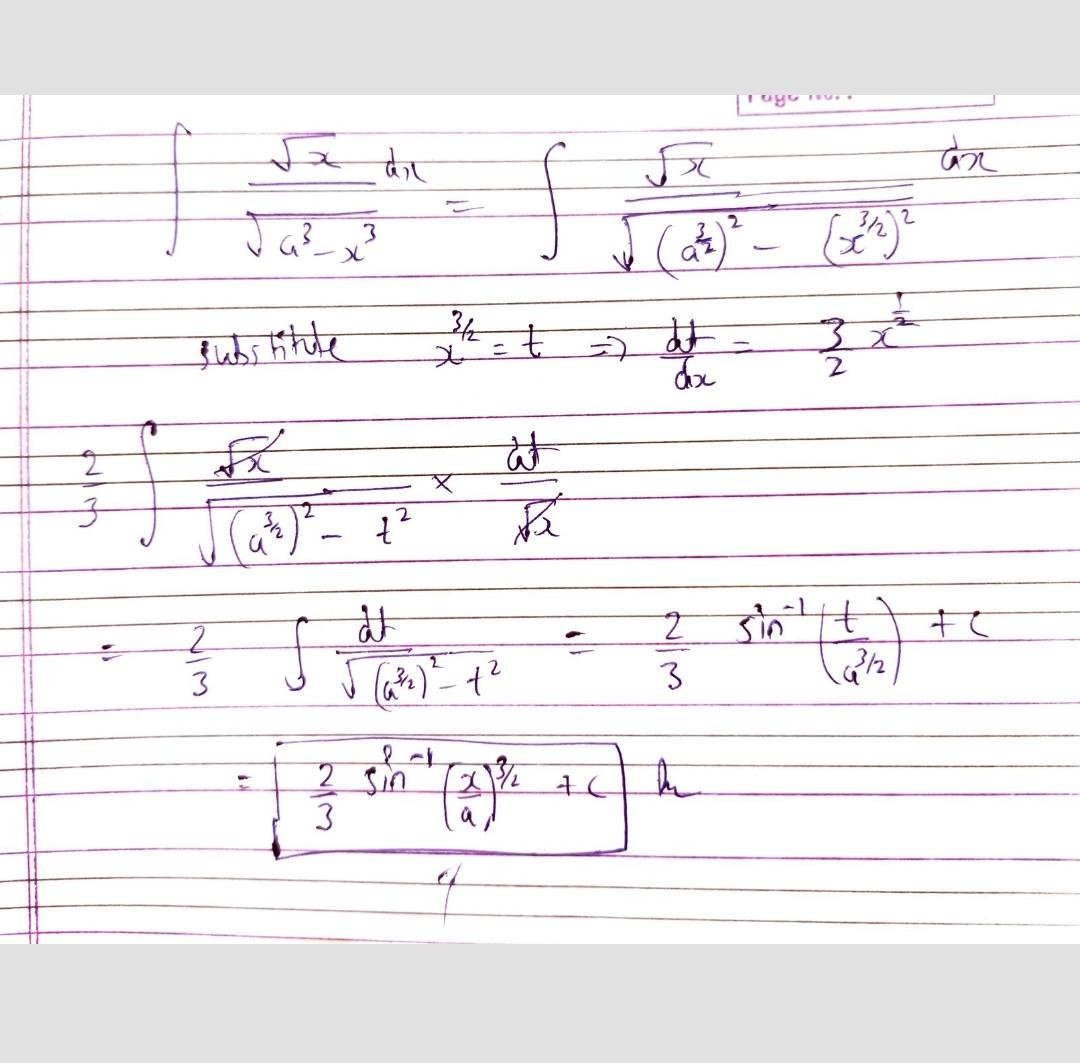 ∫ √x / √(a³ - x³) dx = ∫ √x / √((a^(3/2))² - (x^(3/2))²) dx
substitute x^(3/2) = t ⇒ dt/dx = 3/2 x^(1/2)
2/3 ∫ √x / √((a^(3/2))² - t²) × dt/√x
= 2/3 ∫ dt / √((a^(3/2))² - t²) = 2/3 sin⁻¹(t / a^(3/2)) + c
= 2/3 sin⁻¹(x/a)^(3/2) + c